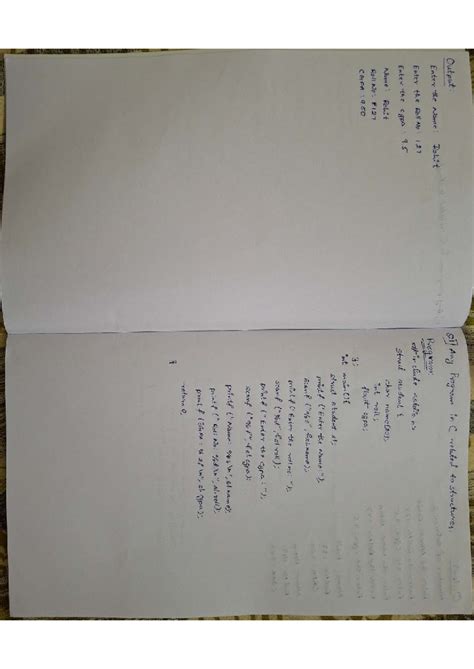 Q1) Any Program in C related to structures.
Program
#include <stdio.h>
struct student {
char name[50];
int roll;
float cgpa;
};
int main() {
struct student s1;
printf ("Enter the Name: ");
scanf ("%s", s1.name);
printf ("Enter the rollno: ");
scanf ("%d", &s1.roll);
printf ("Enter the cgpa: ");
scanf ("%f", &s1.cgpa);
printf ("Name: %s\n", s1.name);
printf ("Roll No: %d\n", s1.roll);
printf ("CGPA: %.2f\n", s1.cgpa);
return 0;
}
Output:
Enter the Name: Rohit
Enter the Roll No: 127
Enter the cgpa: 9.5
Name: Rohit
Roll No: 127
CGPA: 9.50